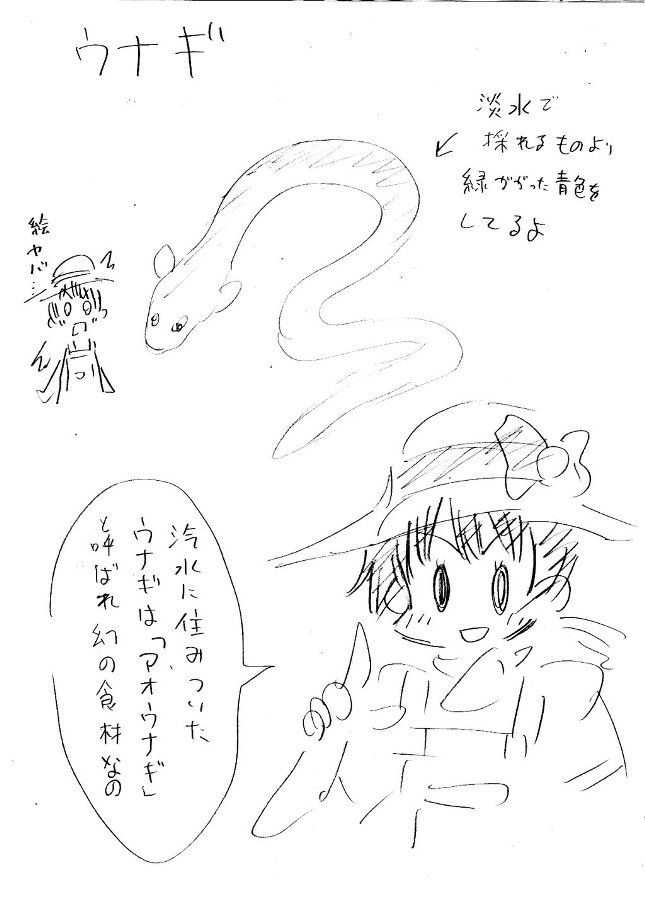 ウナギ
淡水で
採れるものより
緑がかった青色を
してるよ
絵ヤバ…
汽水に住みついた
ウナギは「アオウナギ」
と呼ばれ幻の食材なの